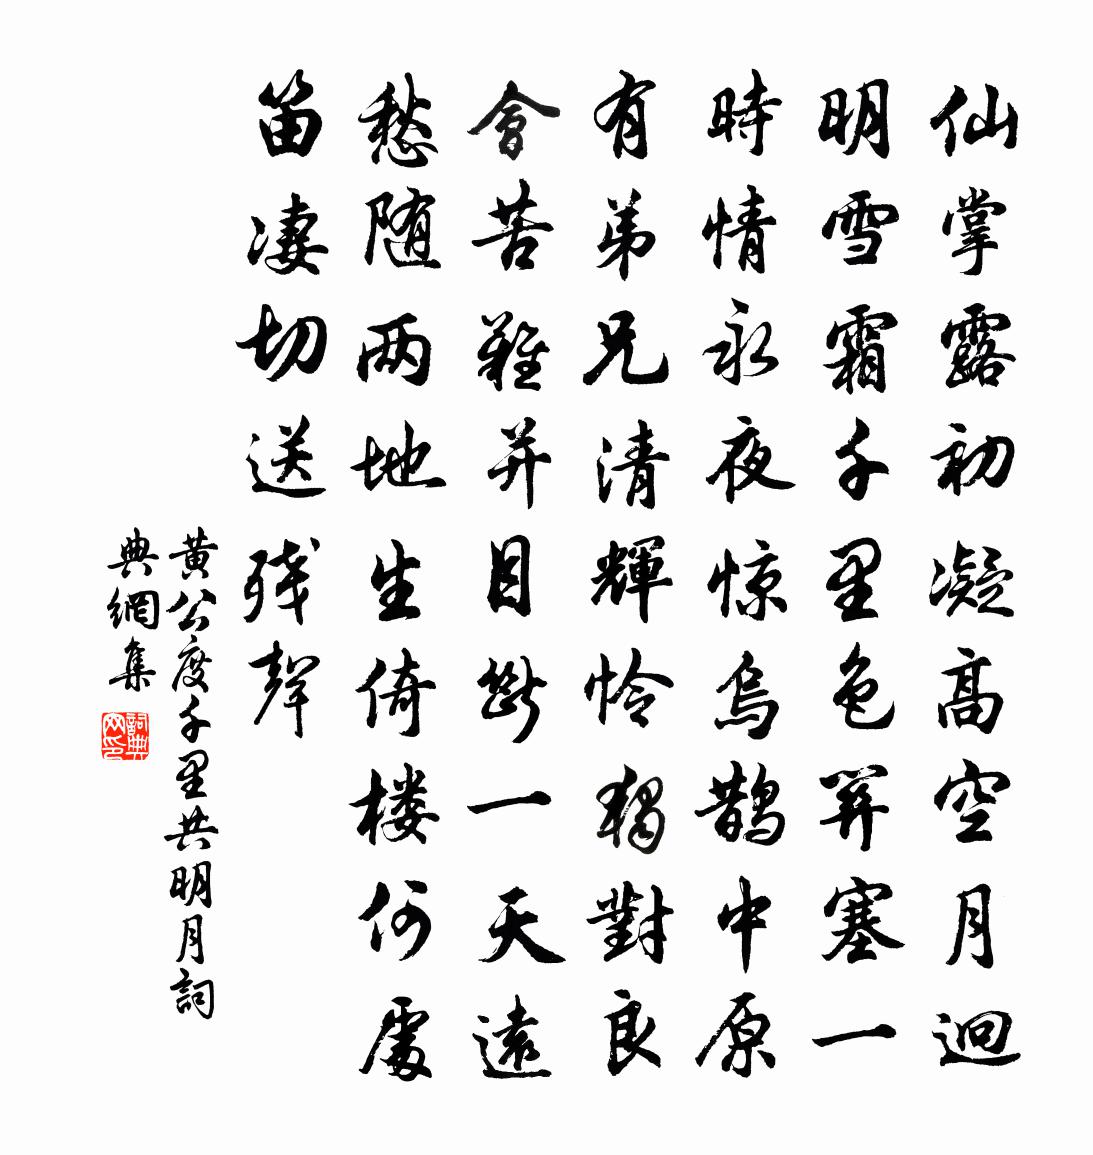 仙掌露初凝高空月迥
明雪霜千里色關塞一
時情永夜惊烏鹊中原
有弟兄清輝怜獨對良
會苦難并目斷一天遠
愁随两地生倚楼何處
笛凄切送残聲
黄公度千里共明月詞
典網集
詞典网印